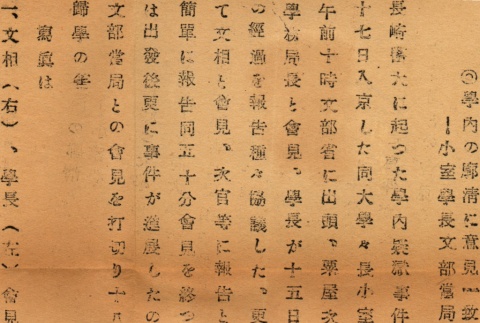 ◎學內の廓淸に意見一致
―小室學長文部當局
長崎醫大に起つた學內疑獄事件
十七日入京した同大學々長小室
午前十時文部省に出頭、粟屋次
學務局長と會見、學長が十五日
の經過を報告種々協議した、更
て文相と會見、次官等に報告と
簡單に報告同五十分會見を終つ
は出發後更に事件が進展したの
文部當局との會見を打切り十八
歸學の筈
寫眞は
一、文相(右)、學長(左)會見